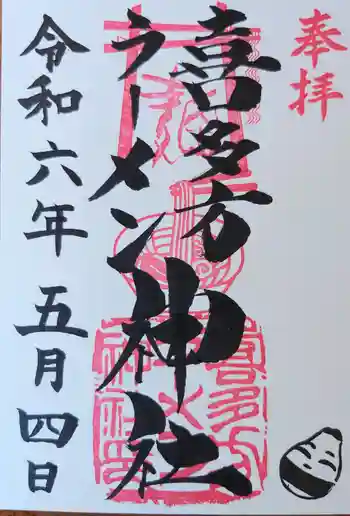 奉拝
喜多方
ラーメン神社
令和六年 五月四日